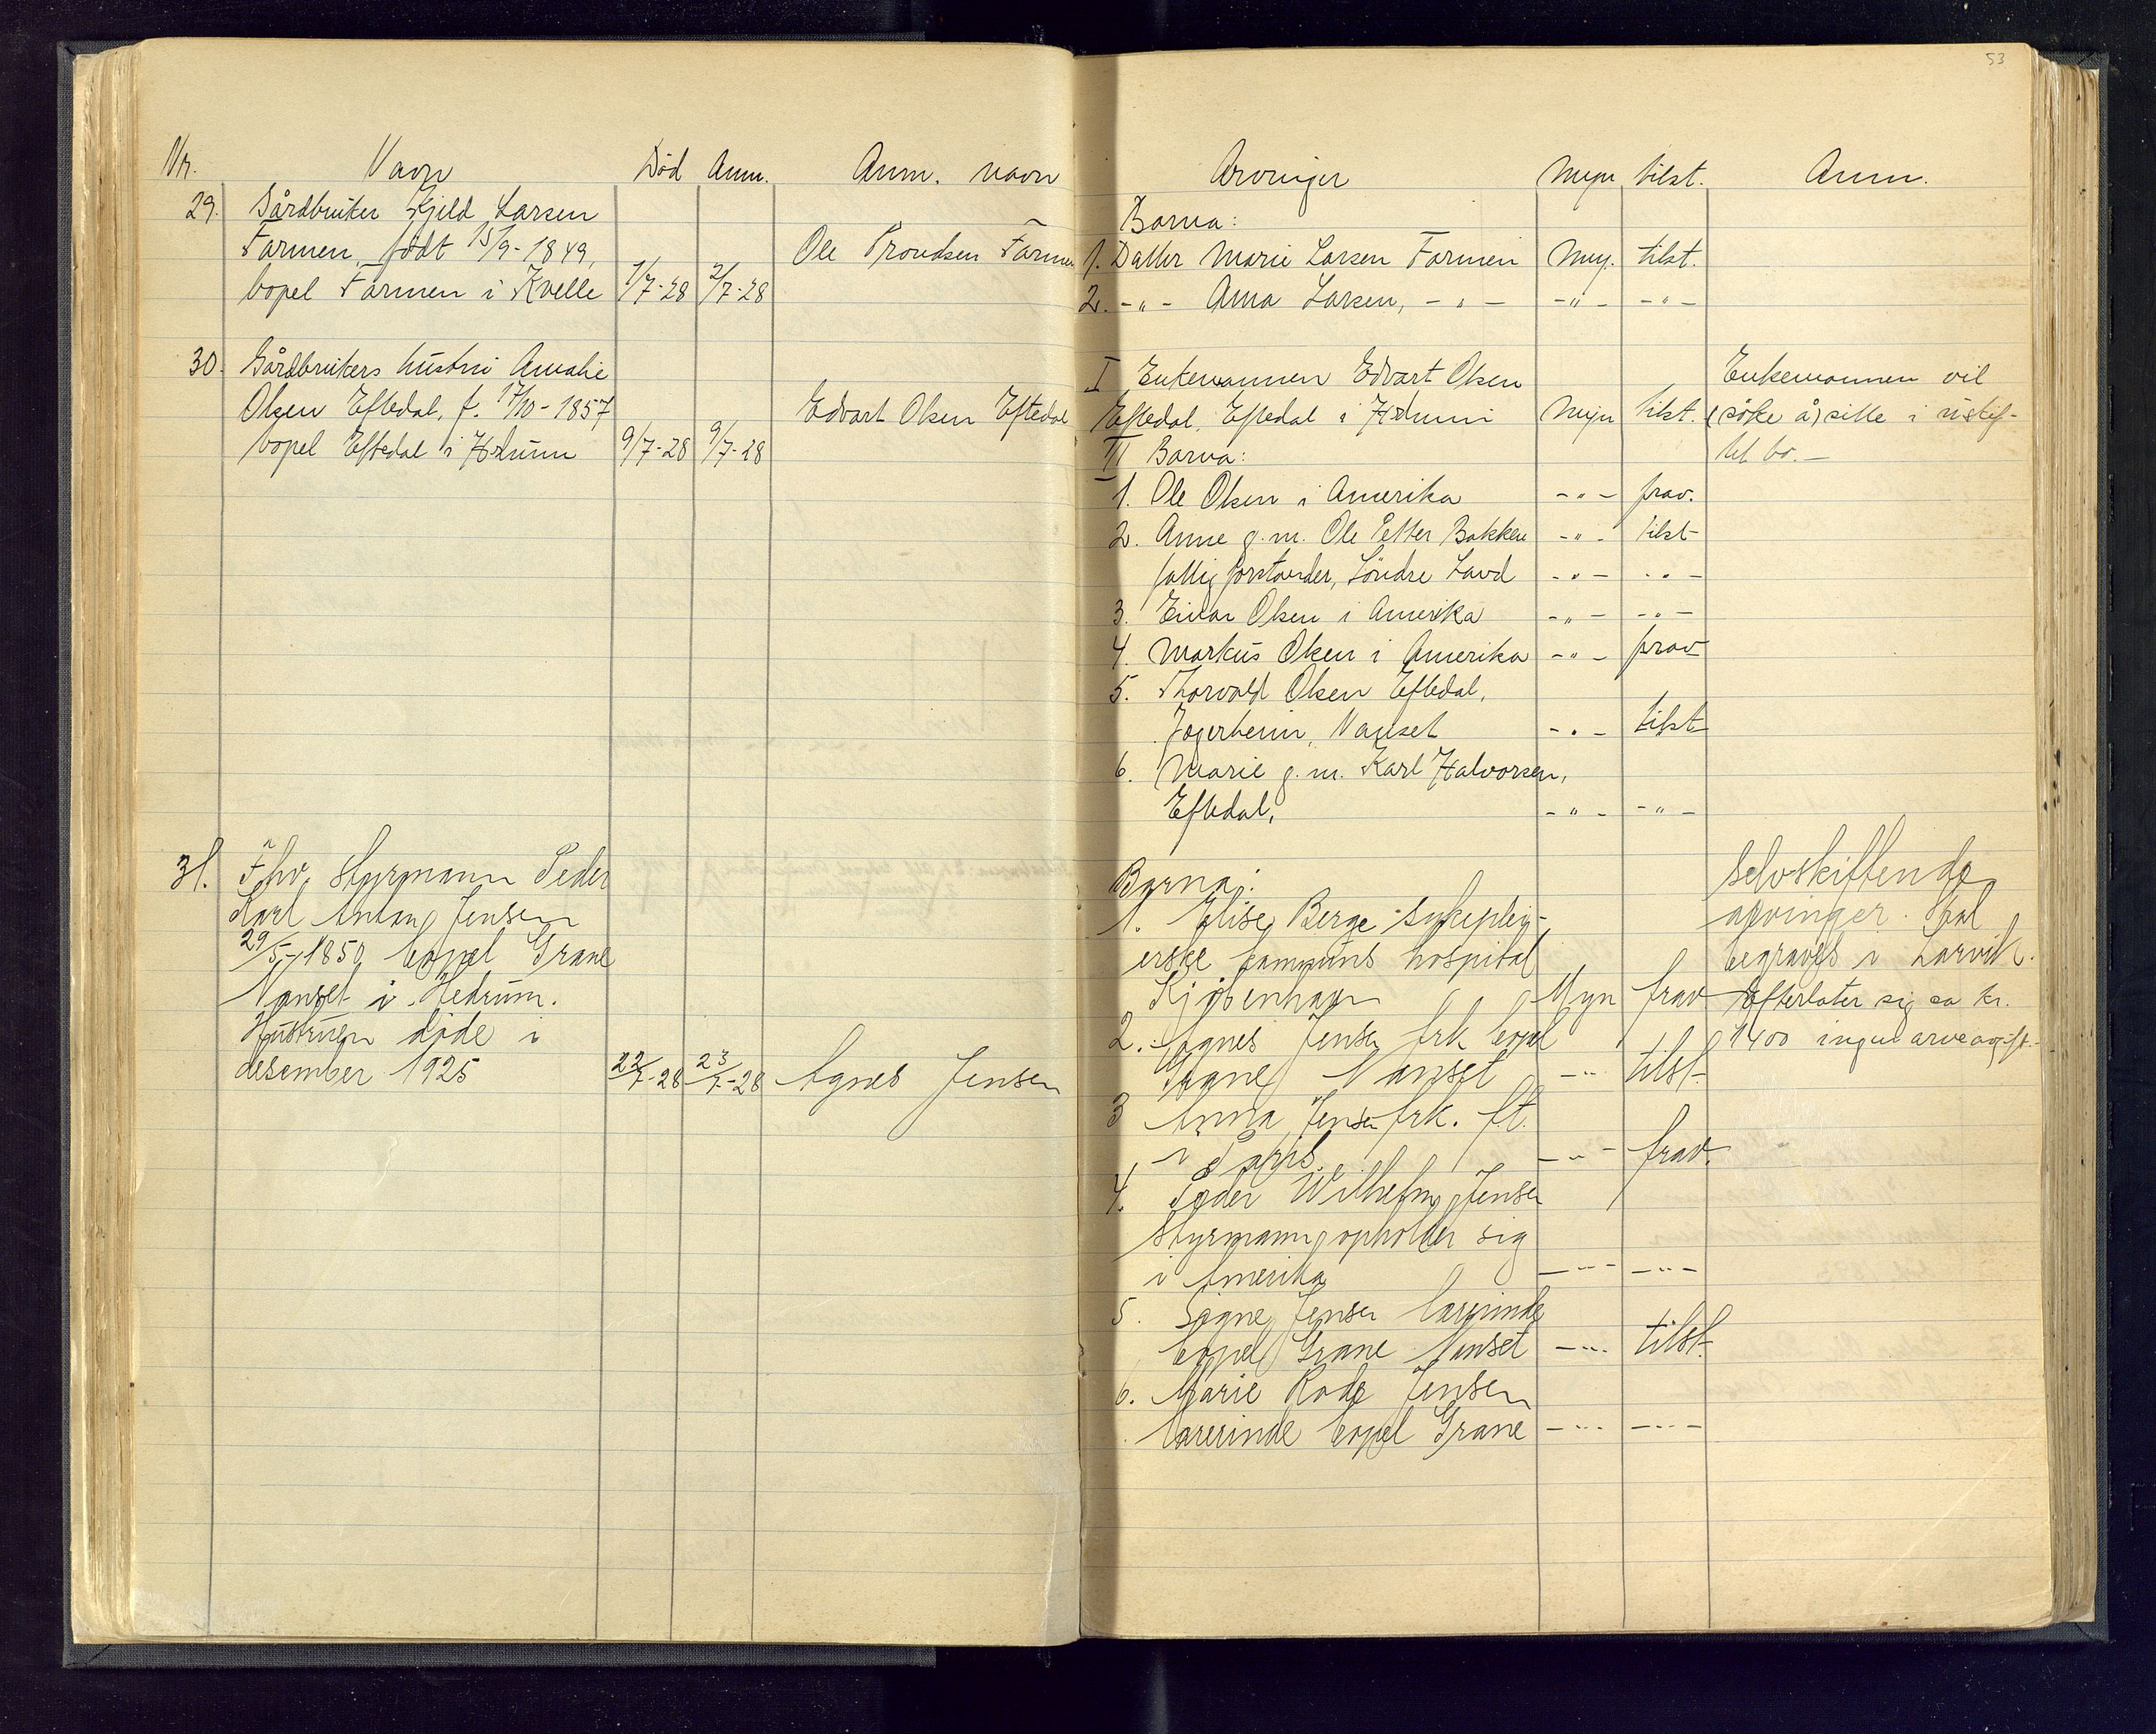 53
Nr. Navn Död Anm. Anm. navn
29. Gårdbruker Kjeld Larsen
Farmen, födt 15/9-1849,
bopel Farmen i Kvelle 1/7-28 2/7-28
Ole Trondsen Farmen
30. Gårdbrukers hustru Amalie
Olsen Eftedal, f. 17/10-1857
bopel Eftedal i Hedrum 9/7-28 9/7-28
Edvart Olsen Eftedal
31. Fhv. Styrmann Peder
Karl Anton Jensen
29/5-1850 bopel Grane
Nanset i Hedrum.
Hustruen döde i
desember 1925 22/7-28 23/7-28 Agnes Jensen
Arvinger Myn tilst. Anm.
Barna:
1. Datter Marie Larsen Farmen Myn. tilst.
2. -"- Anna Larsen, -"- -"- -"-
I Enkemannen Edvart Olsen
Eftedal, Eftedal i Hedrum Myn tilst.
Enkemannen vil
(söke å) sitte i uskif-
tet bo.-
II Barna:
1. Ole Olsen i Amerika -"- frav.
2. Anne g.m. Ole Petter Bakken -"- tilst
fattigforstander, Söndre Land -"- -"-
3. Einar Olsen i Amerika -"- -"-
4. Markus Olsen i Amerika -"- frav
5. Thorvald Olsen Eftedal,
Fagerheim, Nanset -"- tilst
6. Marie g.m. Karl Halvorsen,
Eftedal, -"- -"-
Barna:
1. Elise Berge sykeplei-
erske kommuns hospital
Kjöbenhavn Myn frav
Selvskiftende
arvinger. Skal
begraves i Larvik.
Efterlater sig ca kr.
1400 ingen arveavgift.-
2. Agnes Jensen frk bopel
Grane Nanset -"- tilst.
3 Anna Jensen frk. f.t.
i Paris. -"- frav.
4. Peder Wilhelm Jensen
Styrmann opholder sig
i Amerika -"- -"-
5. Signe Jensen lærerinde
bopel Grane Nanset -"- tilst.
6. Marie Rode Jensen
lærerinde bopel Grane -"- -"-